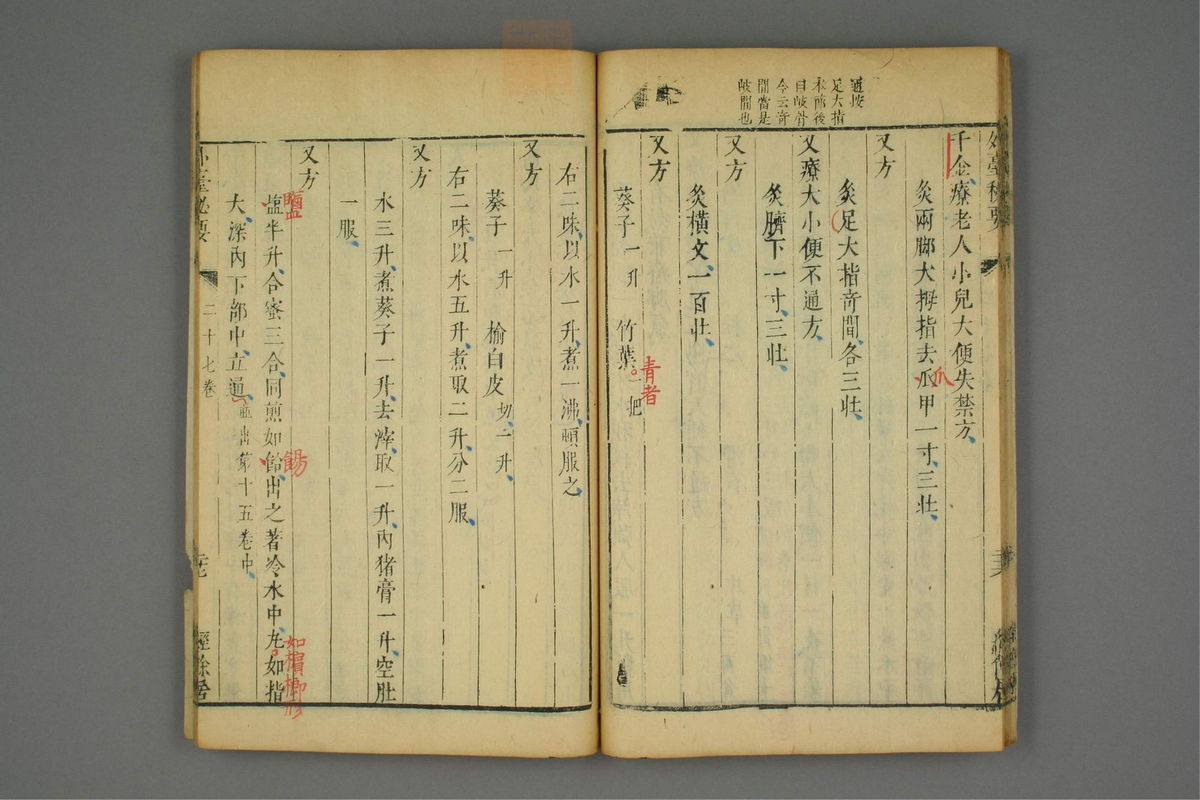 通按
足大指
本節後
自岐骨
今云奇
間當是
岐間也
外臺秘要
千金療老人小兒大便失禁方
灸兩脚大拇指去瓜甲一寸三壯
爪
又方
灸足大指奇間各三壯
又療大小便不通方
灸臍下一寸三壯
又方
灸橫文一百壯
又方
葵子一升 竹葉一把
青者
右二味以水一升煮一沸頓服之
又方
葵子一升 榆白皮切一升
右二味以水五升煮取二升分二服
又方
水三升煮葵子一升去滓取一升內猪膏一升空肚
一服
又方
塩半升合蜜三合同煎如飴出之著冷水中丸如指
鹽
餳
如檳榔形
大深內下部中立通並出第十五卷中
外臺必要 二十七卷 經餘居